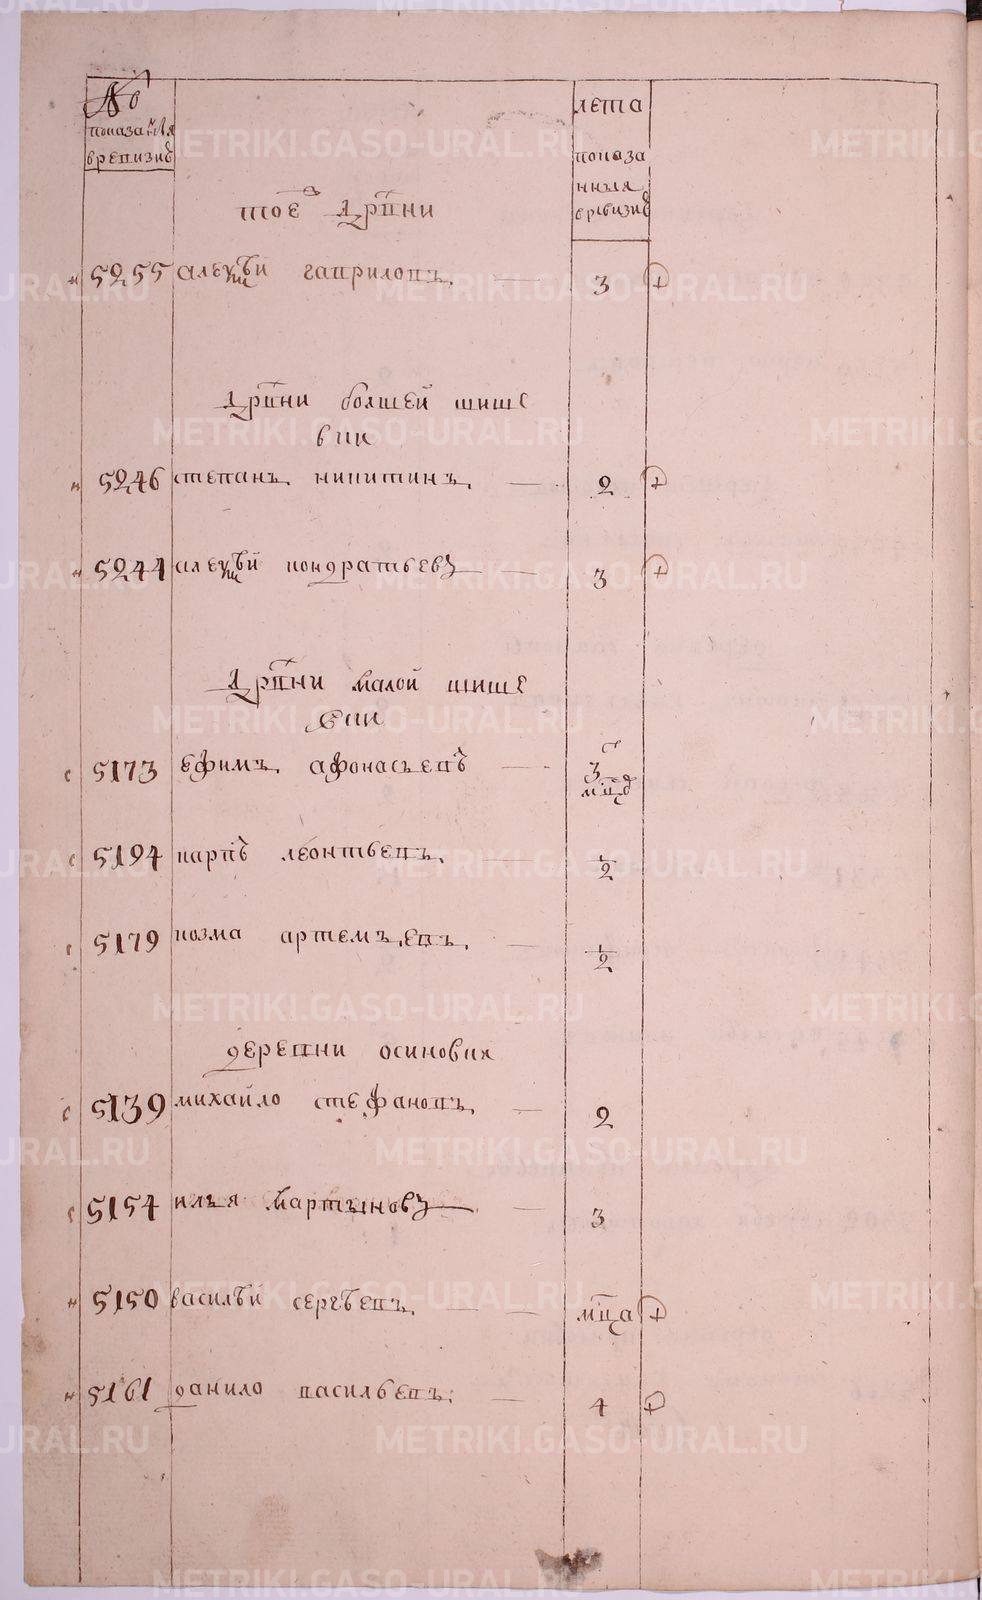 №
показа
в ревизиѣ
лета
показа
нныя
в ревизиѣ
тоѣ дрвни
н 5255 алеѯѣй гавриловъ — 3
дрвни болшей шише
вки
н 5246 степанъ никитинъ — 2
н 5244 алеѯѣй кондратьевъ — 3
дрвни малой шише
вки
с 5173 ефимъ афонасьевъ — 3
мцѣ
с 5194 карпъ леонтьевъ — 1/2
с 5179 козма артемъевъ — 1/2
деревни осиновки
с 5139 михайло стефановъ — 2
с 5154 илья мартыновъ — 3
н 5150 василѣй сергѣевъ — мцца
н 5161 данило васильевъ — 4
METRIKI.GASO-URAL.RU